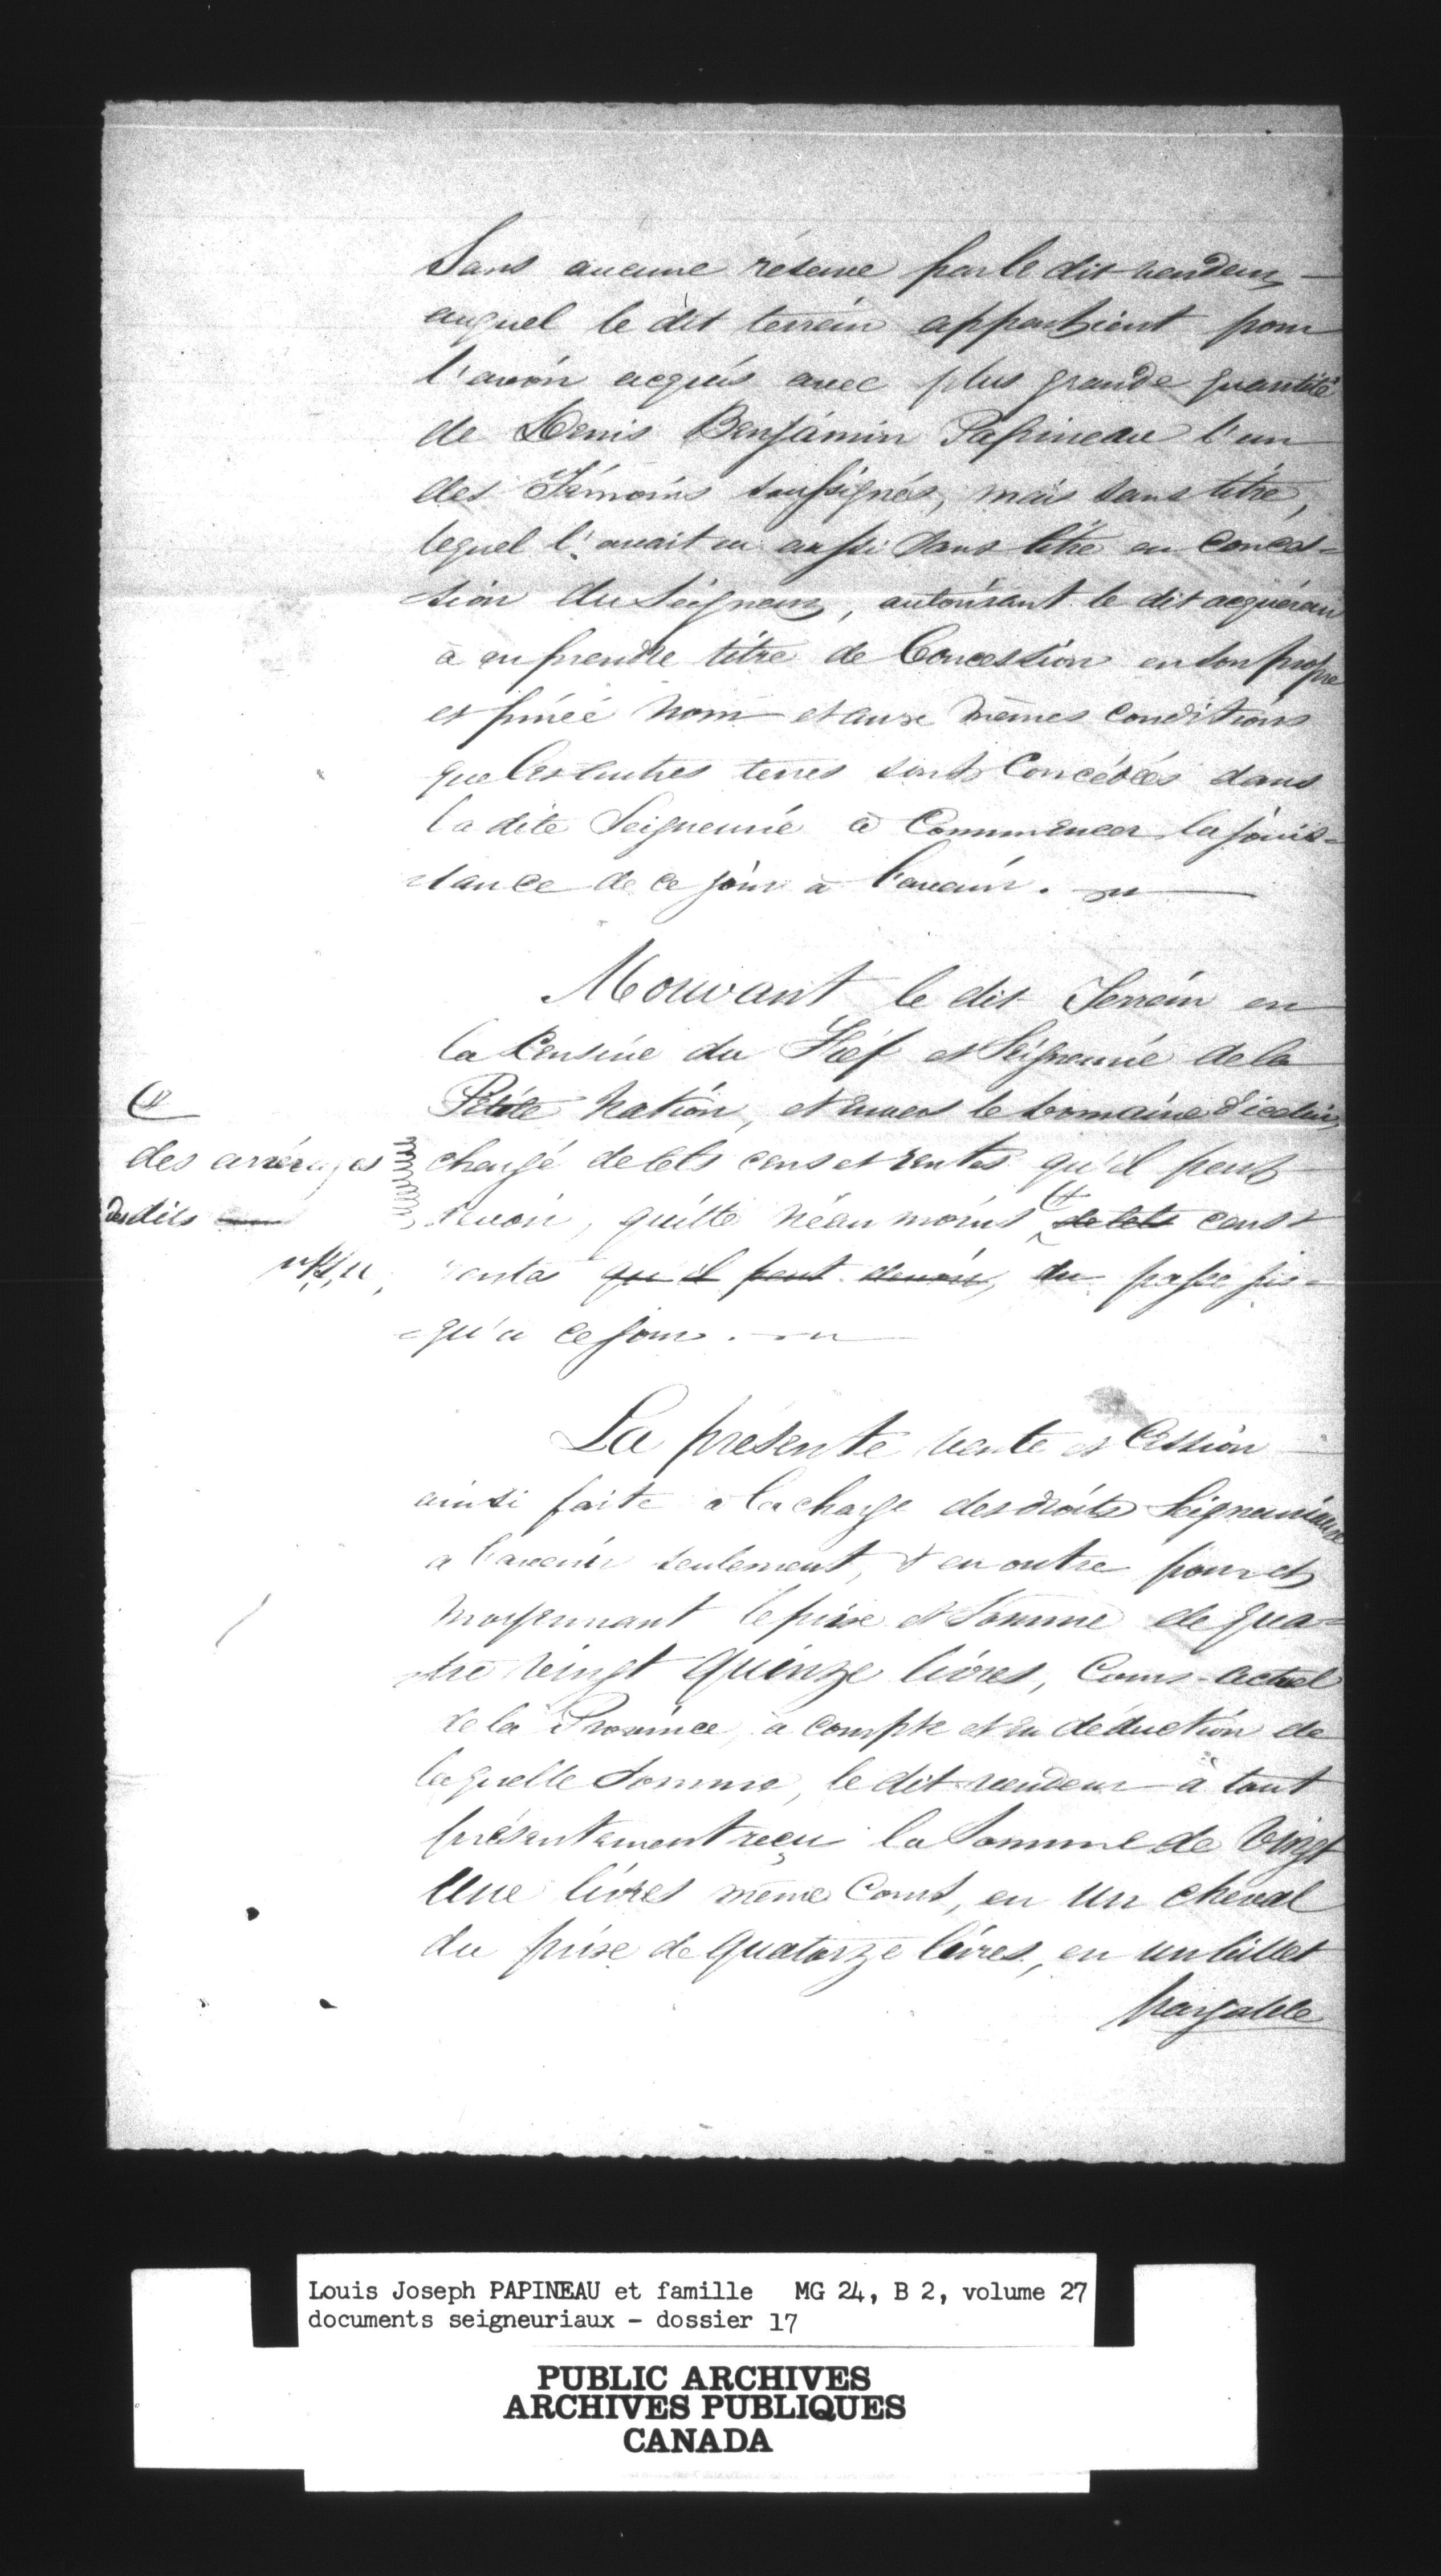 Sans aucune réserve par le dit vendeur
auquel le dit terrein appartient pour
l'avoir acquis avec plus grande quantité
de Denis Benjámin Papineau l'un
des Témoins soussignés, mais sans titre,
lequel l'avait eu aussi sans titre en conces=
sion du Seigneur, autorisant le dit acquéreur
à en prendre titre de Concession en son propre
et privé nom et aux mêmes conditions
que les autres terres sont Concédées dans
la dite Seigneurie à Commencer la jouis=
sance de ce jour à l'avenir.
Mouvant le dit Terrein en
la Censive du Fief et Seigneurie de la
Petite Nation, et envers le Domaine d'icelui,
chargé de tels cens et rentes qu'il peut
devoir, quitte néanmoins de tels cens &
rentes qu'il peut devoir, du passé jus=
=qu'a ce jour.
(#
des arrérages
desdits
La présente vente et Cession
ainsi faite a la charge des droits Seigneuriaux
a l'avenir seulement, & en outre pour et
moyennant le prix et Somme de qua=
tre vingt quinze livres, Cours actuel
de la Province, à compte et en déduction de
laquelle Somme, le dit vendeur à tout
présentement reçu la Somme de Vingt
Une livres même Cours, en Un cheval
du prix de quatorze livres, en un billet
payable
Louis Joseph PAPINEAU et famille MG 24, B 2, volume 27
documents seigneuriaux - dossier 17
PUBLIC ARCHIVES
ARCHIVES PUBLIQUES
CANADA